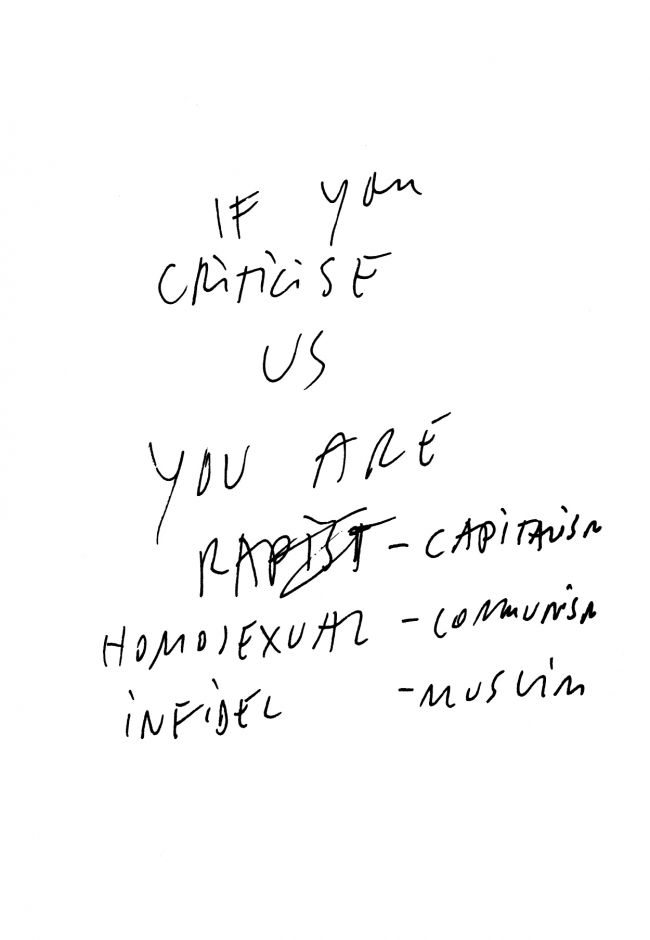 IF you
CRiTiCiSE
US
YOU ARE
RAPIST - CAPiTALiSM
HOMOSEXUAL - COMMUNiSM
iNFiDEL - MUSLiM